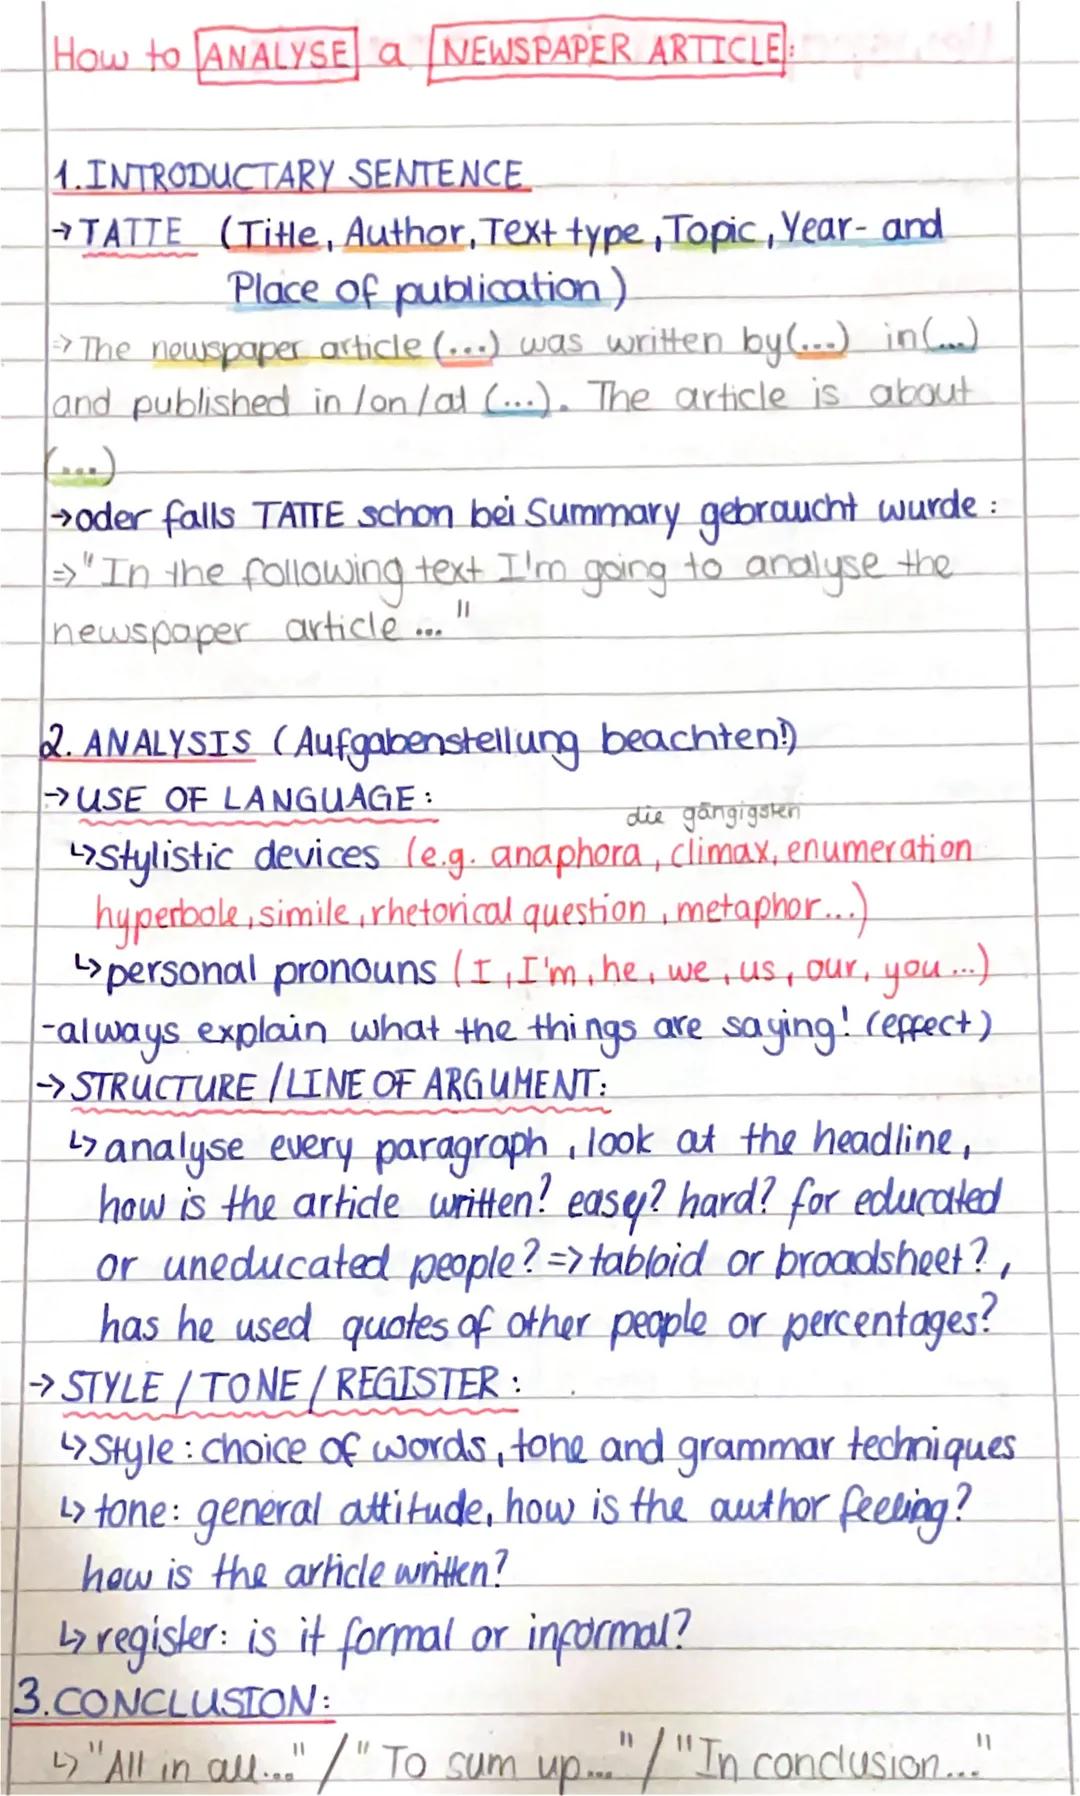 How to ANALYSE a NEWSPAPER ARTICLE:
1. INTRODUCTARY SENTENCE
→ TATTE (Title, Author, Text type, Topic, Year- and
Place of publication)
=> The newspaper article (...) was written by (...) in (...)
and published in /on /at (...). The article is about
(...)
→ oder falls TATTE schon bei Summary gebraucht wurde :
=> "In the following text I'm going to analyse the
newspaper article ... "
2. ANALYSIS (Aufgabenstellung beachten!)
→ USE OF LANGUAGE :
die gängigsten
↳ stylistic devices (e.g. anaphora, climax, enumeration
hyperbole, simile, rhetorical question, metaphor...)
↳ personal pronouns (I, I'm, he, we, us, our, you ...)
-always explain what the things are saying! (effect)
→ STRUCTURE / LINE OF ARGUMENT:
↳ analyse every paragraph, look at the headline,
how is the article written? easy? hard? for educated
or uneducated people? => tabloid or broadsheet?,
has he used quotes of other people or percentages?
→ STYLE / TONE / REGISTER :
↳ Style : choice of words, tone and grammar techniques
↳ tone: general attitude, how is the author feeling?
how is the article written?
↳ register: is it formal or informal?
3. CONCLUSION:
↳ "All in all..." / "To sum up..." / "In conclusion..."